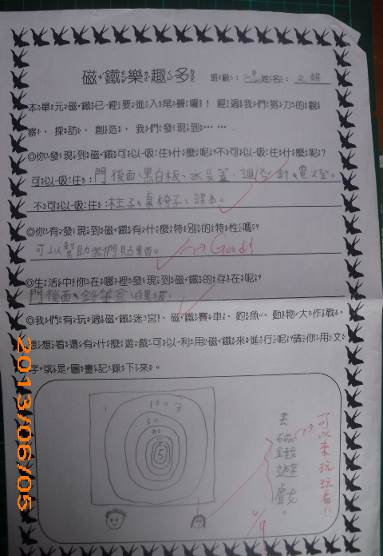 磁鐵樂趣多
班級：
姓名：
本單元磁鐵已經要進入尾聲囉！經過我們努力的觀
察、探訪、創造，我們發現到……
◎你發現到磁鐵可以吸住什麼呢？不可以吸住什麼呢？
可以吸住：門後面、黑白板、水瓜蓋、
不可以吸住：柱子、桌椅子、課本。
◎你有發現到磁鐵有什麼特別的特性嗎？
可以幫助我們貼東西。 Good!
◎生活中你在哪裡發現到磁鐵的存在呢？
門後面、鉛筆盒、
◎我們有玩過磁鐵迷宮、磁鐵賽車、釣魚、動物大作戰，
想想看還有什麼遊戲可以利用磁鐵來進行呢？請你用文
字或是圖畫記錄下來。
可以來玩玩看!!
丟磁鐵遊戲。
100分
5
2013/06/05